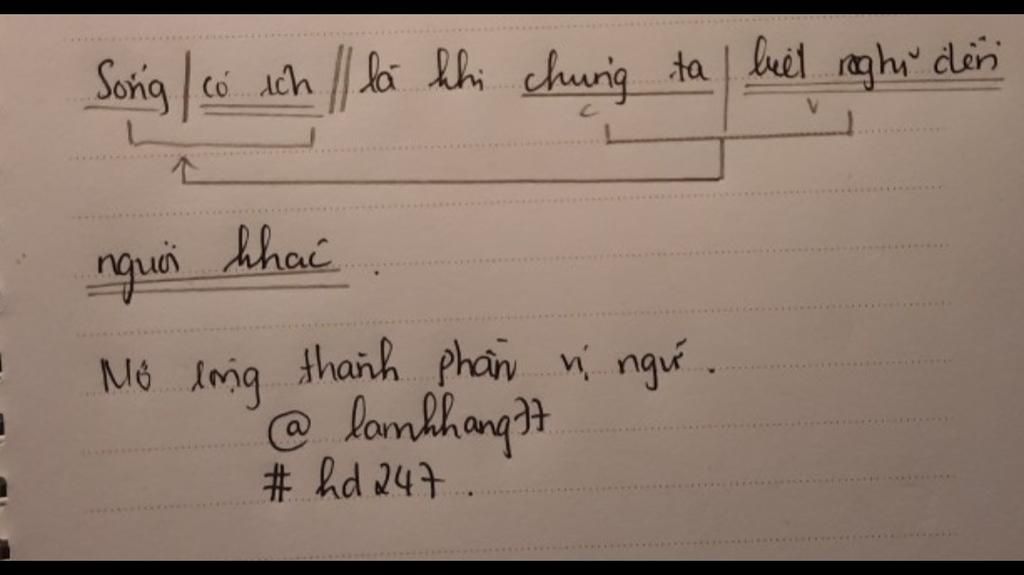 Sống | có ích // là khi chúng ta | biết nghĩ đến
C V
người khác.
Mở rộng thành phần vị ngữ.
@ lamkhang77
# hd 247.